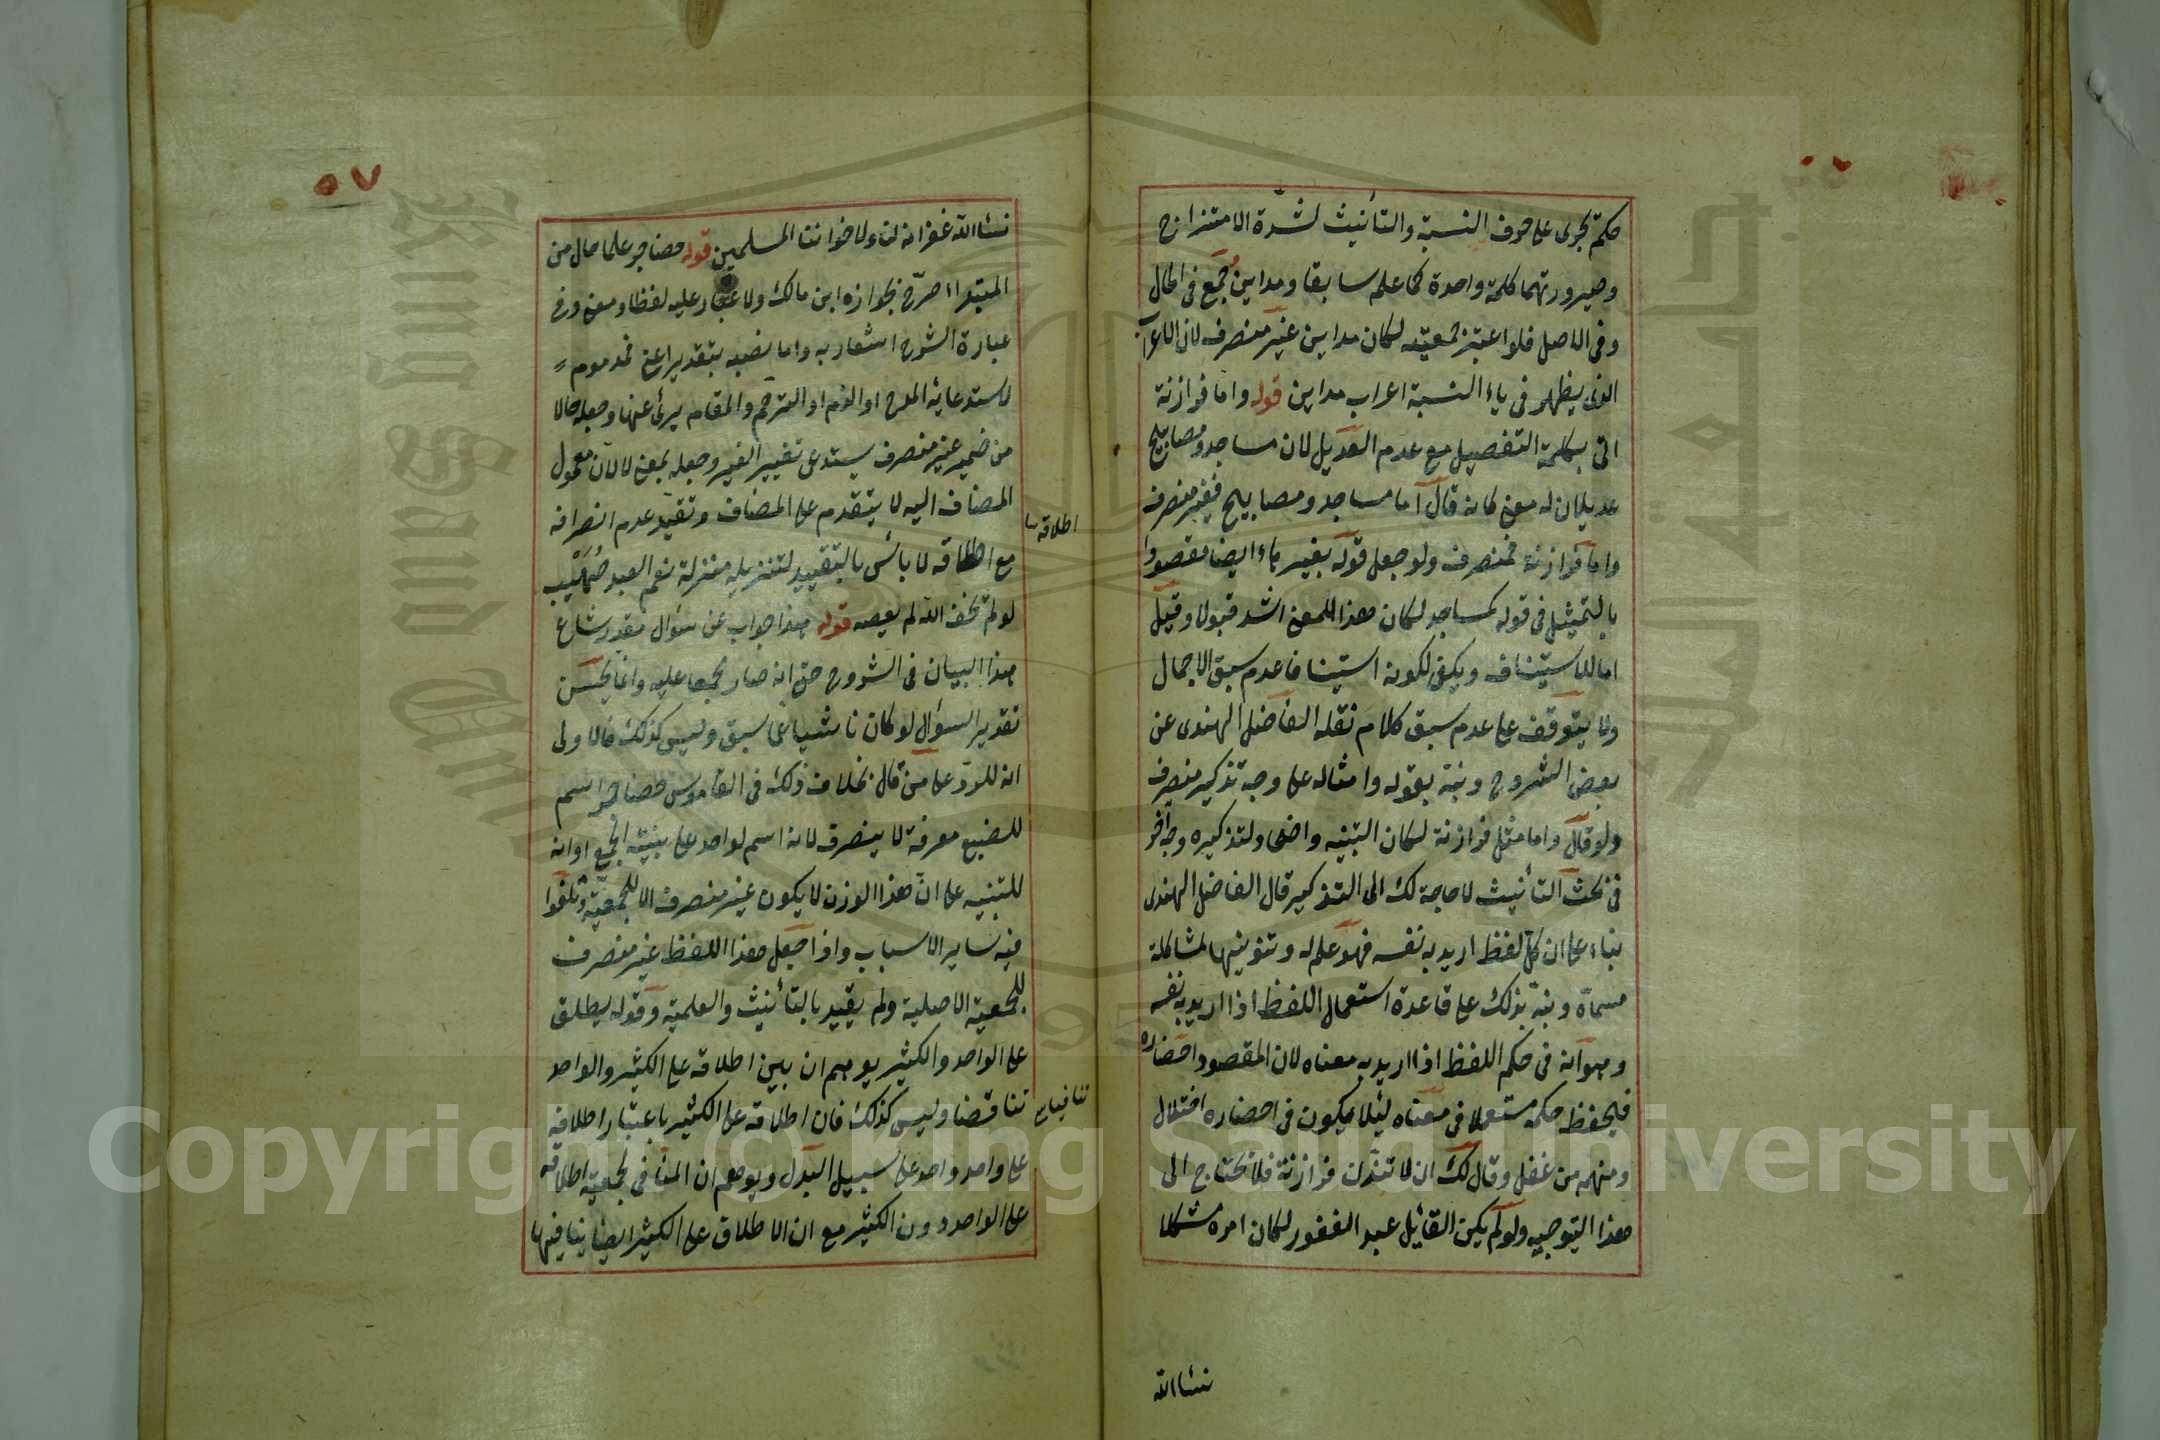 حكم تجرى على حرف النسبة والتأنيث لشدّة الامتزاج
وصيرورتهما كلمة واحدة كما علم سابقا ومداين جمع فى الحال
وفى الاصل فلو اعتبر جمعيته لكان مداين غير منصرف لان الاعراب
الذى يظهر فى ياء النسبة اعراب مداين قوله واما فرازنة
اتى بكلمة التفصيل مع عدم العديل لان مساجد ومصابيح
عديلان له معنى كانه قال اما مساجد ومصابيح فغير منصرف
واما فرازنة فمنصرف ولو جعل قوله بغير هاء ايضا مقصودا
بالتمثيل فى قوله كمساجد لكان هذا المعنى اشد قبولا وقيل
اما للاستيناف ويكفى لكونه استينافا عدم سبق الاجمال
ولا يتوقف على عدم سبق كلام نقله الفاضل الهندى عن
بعض الشروح ونبّه بقوله وامثاله على وجه تذكير منصرف
ولو قال واما مثل فرازنة لكان التنبيه واضحا ولتذكيره وجه آخر
فى بحث التأنيث لا حاجة لك الى التذكير قال الفاضل الهندى
بناء على ان كل لفظ اريد به نفسه فهو علم له وتنوينها لمشاكلة
مسماه ونبّه بذلك على قاعدة استعمال اللفظ اذا اريد به نفسه
وهو انه فى حكم اللفظ اذا اريد به معناه لان المقصود احضاره
فليحفظ حكمه مستعملا فى معناه ليلا يكون فى احضاره اختلال
ومنهم من غفل وقال لك ان لا تنون فرازنة فلا تحتاج الى
هذا التوجيه ولو لم يكن القائل عبد الغفور لكان امره مشكلا
نسئل الله
٥٧
نسئل الله غفرانه لنا ولاخواننا المسلمين قوله حضاجر علما حال من
المبتدا صرّح بجوازه ابن مالك ولا غبار عليه لفظا ومعنى وفى
عبارة الشرح اشعار به واما نصبه بتقدير اعنى فمدموم
لاستدعائه المدح او الذم او الترحم والمقام برئ عنها وجعله حالا
من ضمير غير منصرف يستدعى تفسير الغير وجعله بمعنى لا لان معمول
المضاف اليه لا يتقدم على المضاف وتقييد عدم انصرافه
مع اطلاقه لا بأس بالتقييد لتنزيله منزلة نعم العبد صُهَيْب
لو لم يخف الله لم يعصه قوله هذا جواب عن سؤال مقدر شاع
هذا البيان فى الشروح حتى انه صار مجمعا عليه وانما يحسن
تقدير السؤال لو كان ناشيا عما سبق وليس كذلك فالاولى
انه للرد على من قال بخلاف ذلك فى القاموس حضاجر اسم
للضبع معرفة لا ينصرف لانه اسم لواحد على بنية الجمع او انه
للتنبيه على انّ هذا الوزن لا يكون غير منصرف الا للجمعية
فيه ساير الاسباب واذا جعل هذا اللفظ غير منصرف
للجمعية الاصلية ولم يقيد بالتأنيث والعلمية وقوله يطلق
على الواحد والكثير يوهم ان بين اطلاقه على الكثير والواحد
تناقضا وليس كذلك فان اطلاقه على الكثير باعتبار اطلاقه
على واحد واحد على سبيل البدل ويوهم ان المنافى لجمعيته اطلاقه
على الواحد دون الكثير مع ان الاطلاق على الكثير ايضا ينافيها
اطلاقه
تنافيا
King Saud University
Copyright © King Saud University